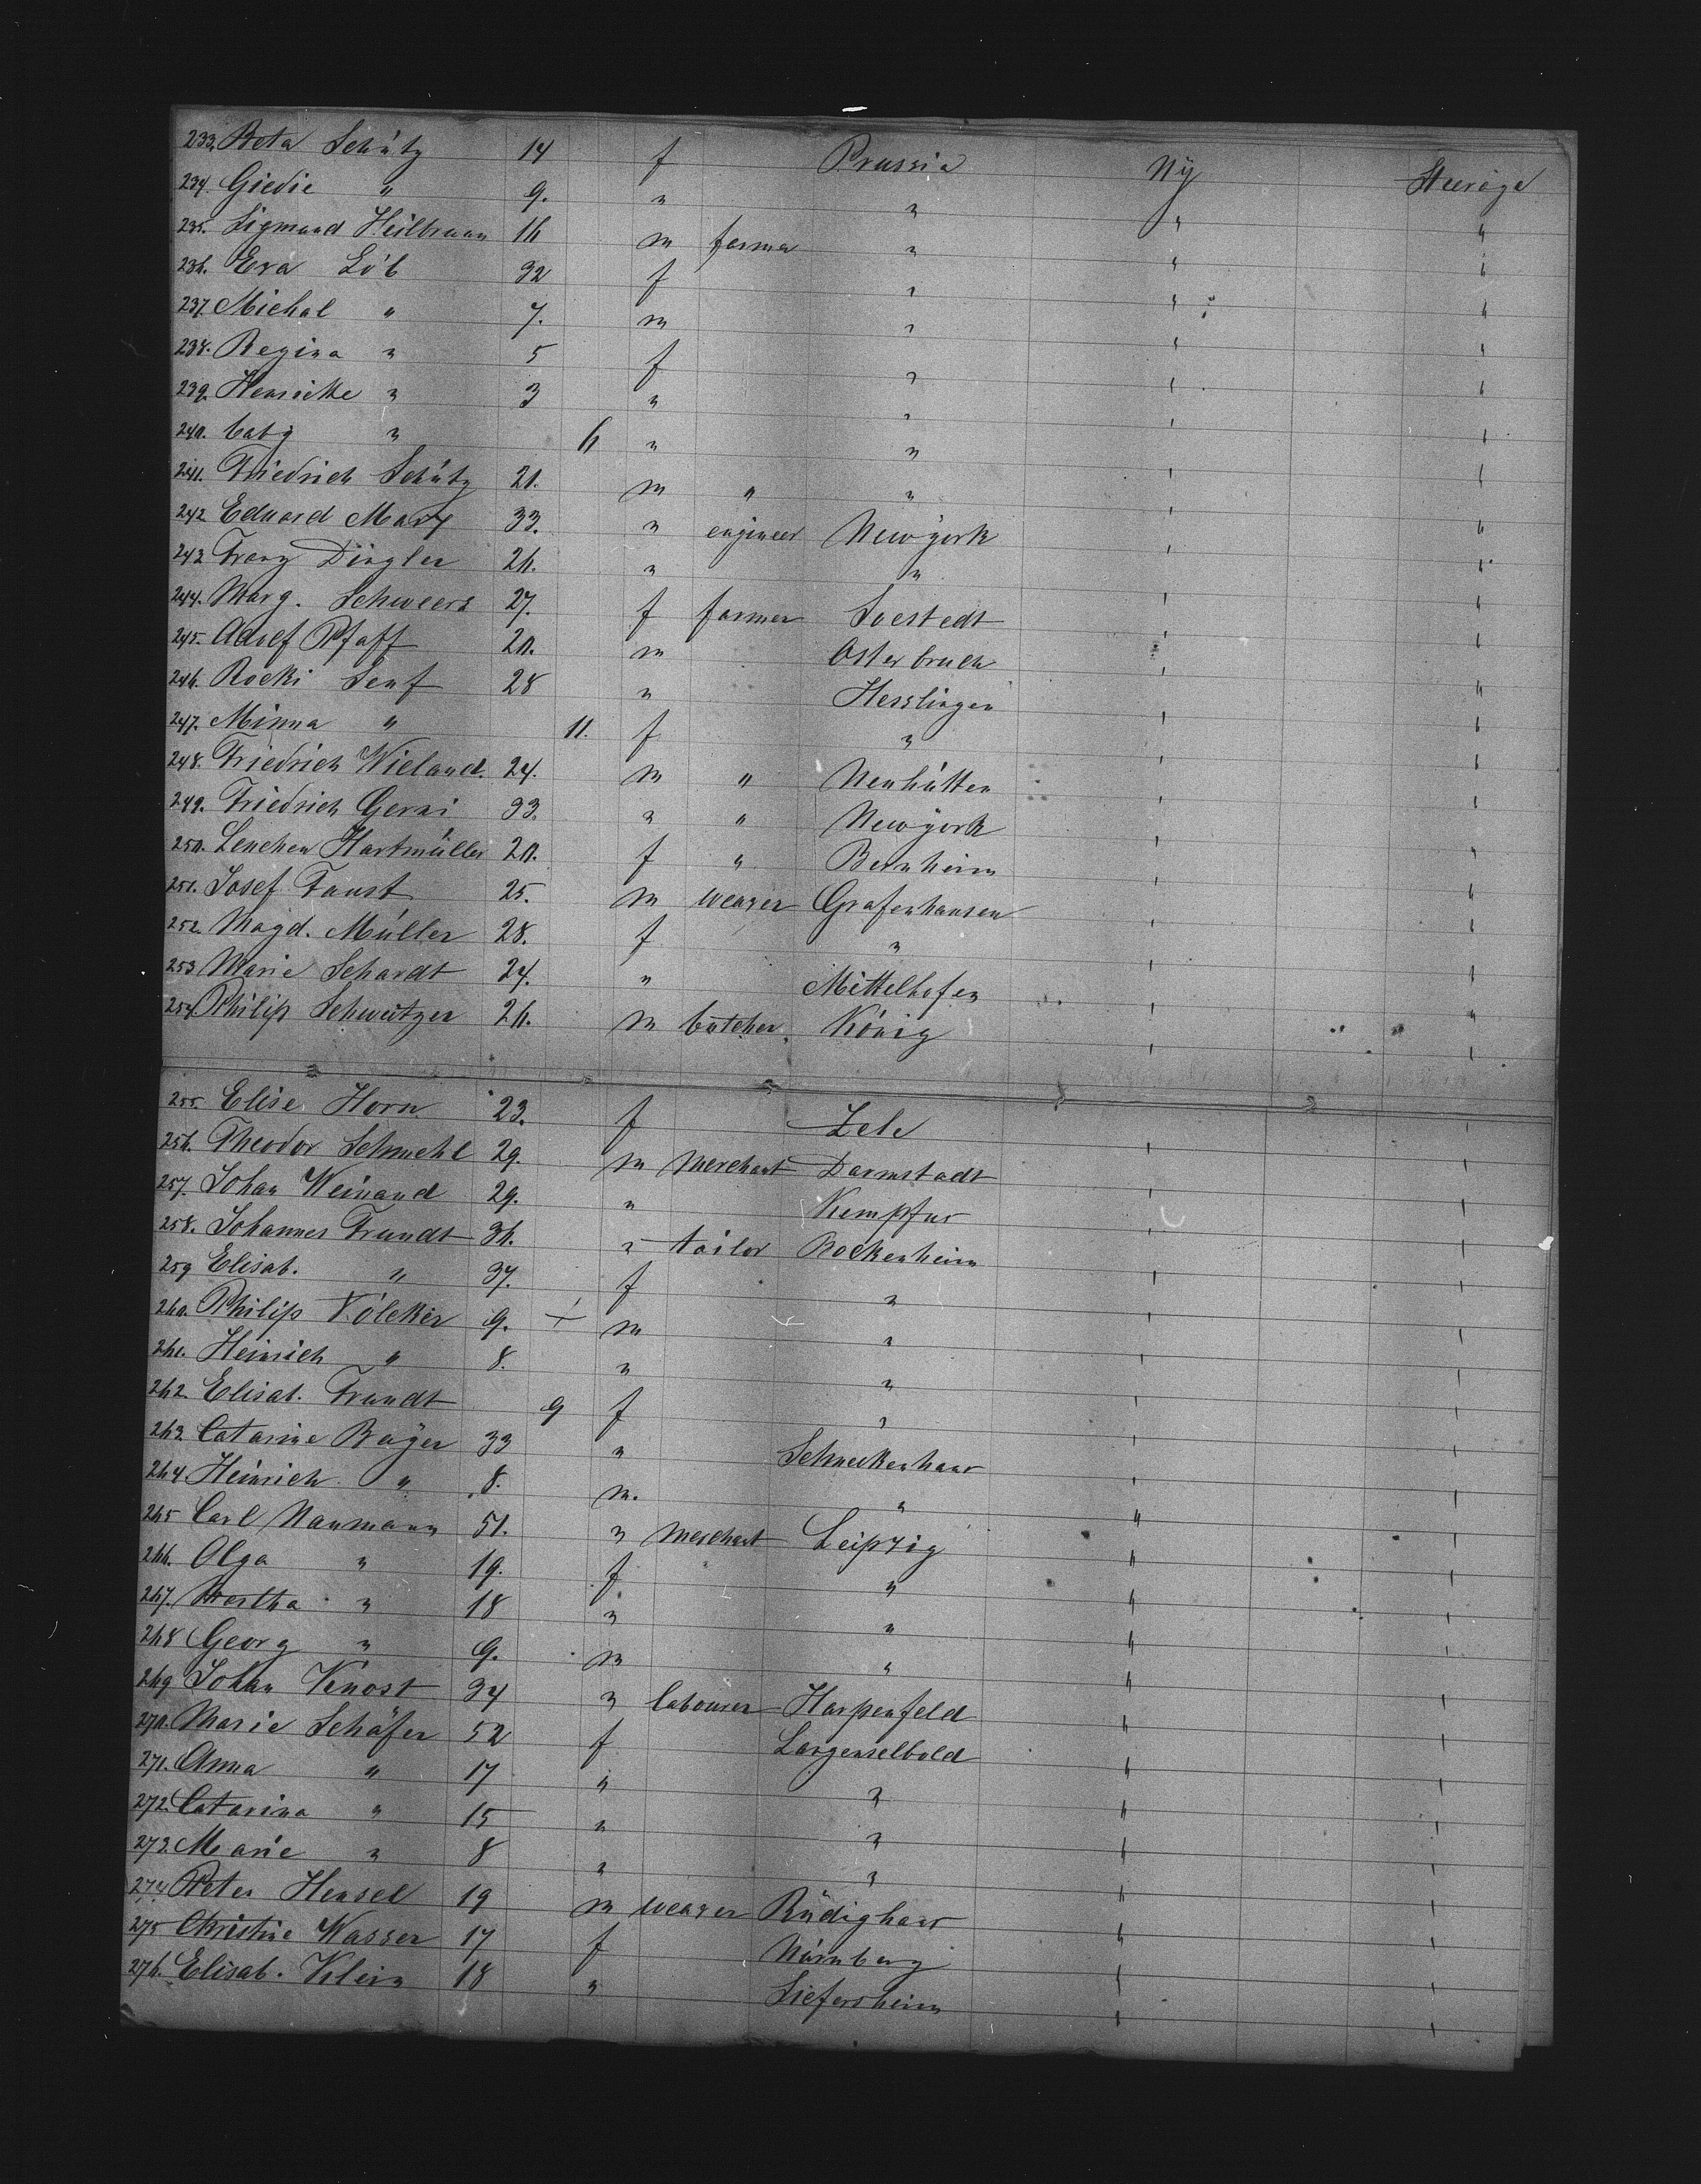 233. Beta Schütz 14 f Prussia Ny Steerage
234. Giedie " 9. " " " "
235. Sigmund Heilbrunn 16 m farmer " " "
236. Eva Löb 32 f " " "
237. Michal " 7. m " " "
238. Regina " 5 f " " "
239. Henriette " 3 " " " "
240. Caty " 6 " " " "
241. Friedrich Schütz 21. m " " " "
242. Eduard Marx 33. " engineer Newyork " "
243. Franz Dingler 26. " " " "
244. Marg. Schweers 27. f farmer Soestedt " "
245. Adolf Pfaff 20. m Osterbruch " "
246. Rocki Senf 28 " Hesslingen " "
247. Minna " 11. f " " "
248. Friedrich Wieland. 24. m " Neuhütten " "
249. Friedrich Gerni 33. " " Newyork " "
250. Lenchen Hartmüller 20. f " Bernheim " "
251. Josef Faust 25. m weaver Grafenhausen " "
252. Magd. Müller 28. f " " "
253. Marie Schardt 24. " Mittelhofen " "
254. Philip Schweitzer 26. m butcher König " "
255. Elise Horn 23. f Zele " "
256. Theodor Schmehl 29. m Merchant Darmstadt " "
257. Johan Weinand 29. " Kempfus " "
258. Johannes Trundt 36. " tailor Bockenheim " "
259 Elisab. " 37. f " " "
260. Philip Völcker 9. + m " " "
261. Heinrich " 8. " " " "
262. Elisab. Trundt 9 f " " "
263. Catarine Bayer 33 " Schneckenhaus " "
264 Heinrich " 8. m. " " "
265 Carl Naumann 51. " Merchant Leipzig " "
266. Olga " 19. f " " "
267. Bertha " 18 " " " "
268 Georg " 9. m " " "
269 Johan Knost 34 " labourer Harpenfeld " "
270. Marie Schäfer 52 f Langenselbold " "
271. Anna " 17 " " " "
272. Catarina " 15 " " " "
273. Marie " 8 " " " "
274 Peter Hensel 19 m weaver Rüdighaus " "
275 Christine Wasser 17 f Nürnberg " "
276. Elisab. Klein 18 " Siefersheim " "